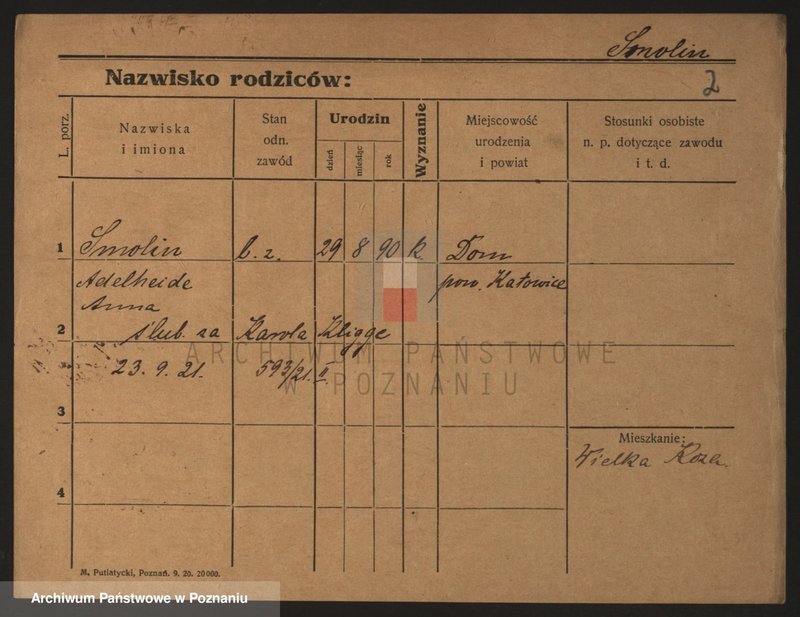 Smolin
Nazwisko rodziców:
2
L. porz.
Nazwiska
i imiona
Stan
odn.
zawód
Urodzin
dzień
miesiąc
rok
Wyznanie
Miejscowość
urodzenia
i powiat
Stosunki osobiste
n. p. dotyczące zawodu
i t. d.
1 Smolin b. z. 29 8 90 k. Dom
Adelheide pow. Katowice
Anna
2 ślub. za Karola Kligge
ARCHIWUM PAŃSTWOWE
23. 9. 21. 593/21. II.
W POZNANIU
3
Mieszkanie:
Wielka Koza.
4
M. Putiatycki, Poznań. 9. 20. 20000.
Archiwum Państwowe w Poznaniu